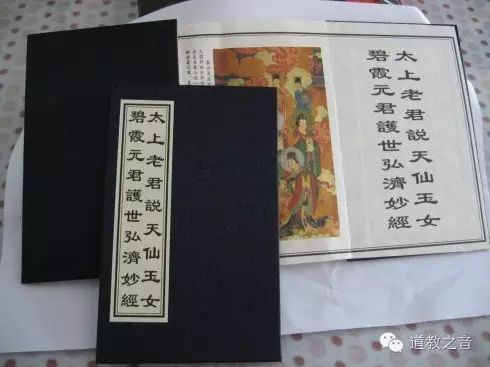 太上老君説天仙玉女
碧霞元君護世弘濟妙經
太上老君説天仙玉女
碧霞元君護世弘濟妙經
道教之音